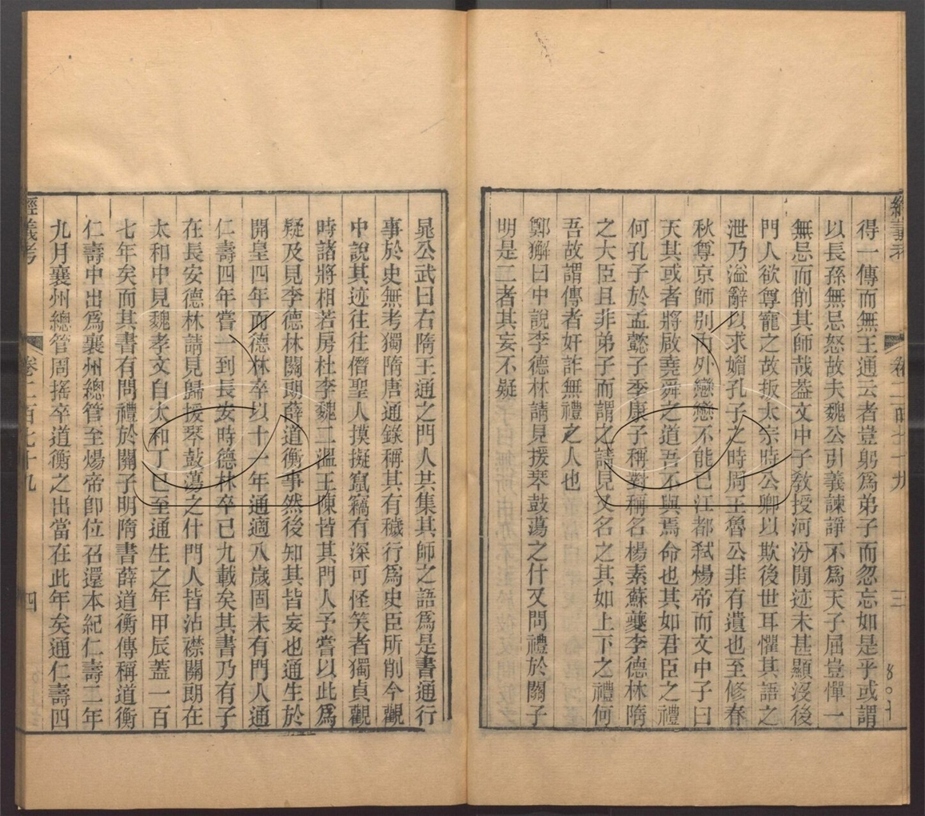 得一傳而無王通云者豈躬爲弟子而忽忘如是乎或謂
以長孫無忌怒故夫魏公引義諫諍不爲天子屈豈憚一
無忌而削其師哉葢文中子敎授河汾閒迹未甚顯沒後
門人欲尊寵之故扳太宗時公卿以欺後世耳懼其語之
泄乃溢辭以求媚孔子之時周王魯公非有遺也至修春
秋尊京師別內外戀戀不能已江都弑煬帝而文中子曰
天其或者將啟堯舜之道吾不與焉命也其如君臣之禮
何孔子於孟懿子季康子稱對稱名楊素蘇夔李德林隋
之大臣且非弟子而謂之請見又名之其如上下之禮何
吾故謂傳者奸詐無禮之人也
鄭獬曰中說李德林請見援琴鼓蕩之什又問禮於關子
明是二者其妄不疑
經義考 卷二百七十九 三
晁公武曰右隋王通之門人共集其師之語爲是書通行
事於史無考獨隋唐通錄稱其有穢行爲史臣所削今觀
中說其迹往往僭聖人摸擬竄竊有深可怪笑者獨貞觀
時諸將相若房杜李魏二溫王陳皆其門人予嘗以此爲
疑及見李德林關朗薛道衡事然後知其皆妄也通生於
開皇四年而德林卒以十一年通適八歲固未有門人通
仁壽四年嘗一到長安時德林卒已九載矣其書乃有子
在長安德林請見歸援琴鼓蕩之什門人皆沾襟關朗在
太和中見魏孝文自太和丁巳至通生之年甲辰蓋一百
七年矣而其書有問禮於關子明隋書薛道衡傳稱道衡
仁壽中出爲襄州總管至煬帝卽位召還本紀仁壽二年
九月襄州總管周搖卒道衡之出當在此年矣通仁壽四
經義考 卷二百七十九 四